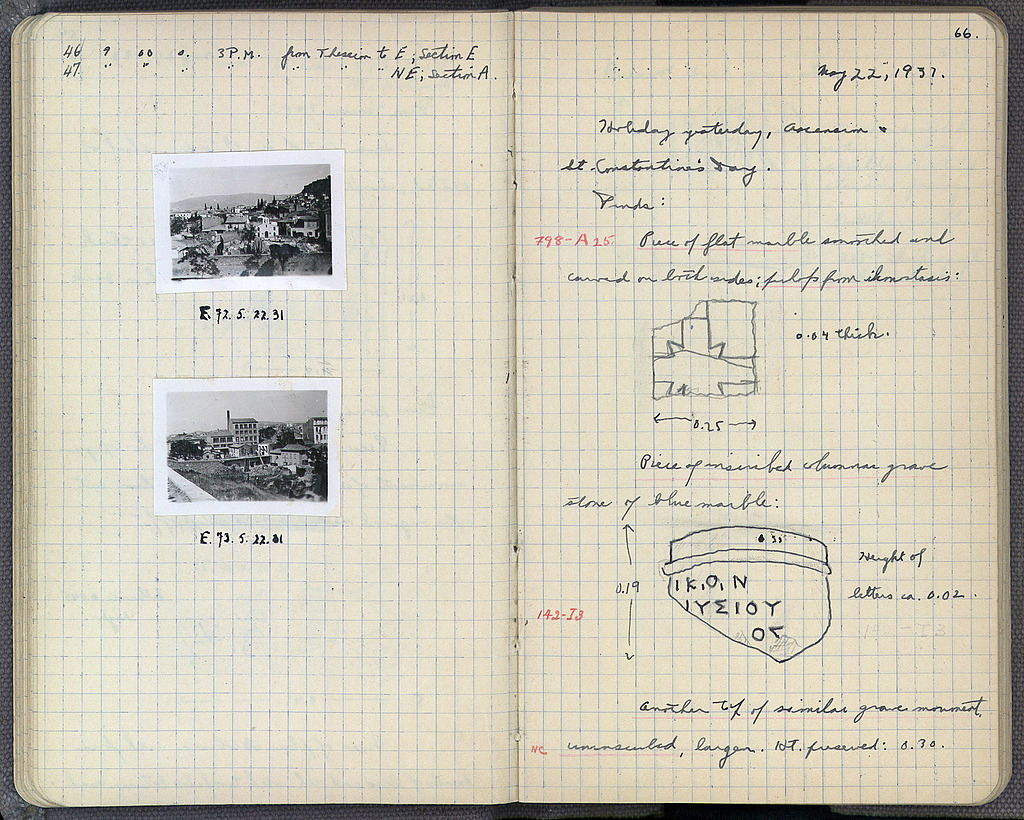 46 9 00 0. 3 P.M. from Theseion to E; Section E
47 " " " " " " NE; Section A.
E. 72. 5. 22. 31
E. 73. 5. 22. 31
66.
May 22, 1931.
Holiday yesterday, Ascension &
St. Constantine's Day.
Finds:
798-A 25 Piece of flat marble smoothed and
carved on both sides; prhps from ikonostasis:
0.04 thick.
0.25
Piece of inscribed columnar grave
stone of blue marble:
0.19
Height of
letters ca. 0.02.
ΙΚ.Ο.Ν
ΙΥΣΙΟΥ
ΟΣ
142-I3
142-I3
Another top of similar grave monument,
NC uninscribed, larger. Ht. preserved: 0.30.